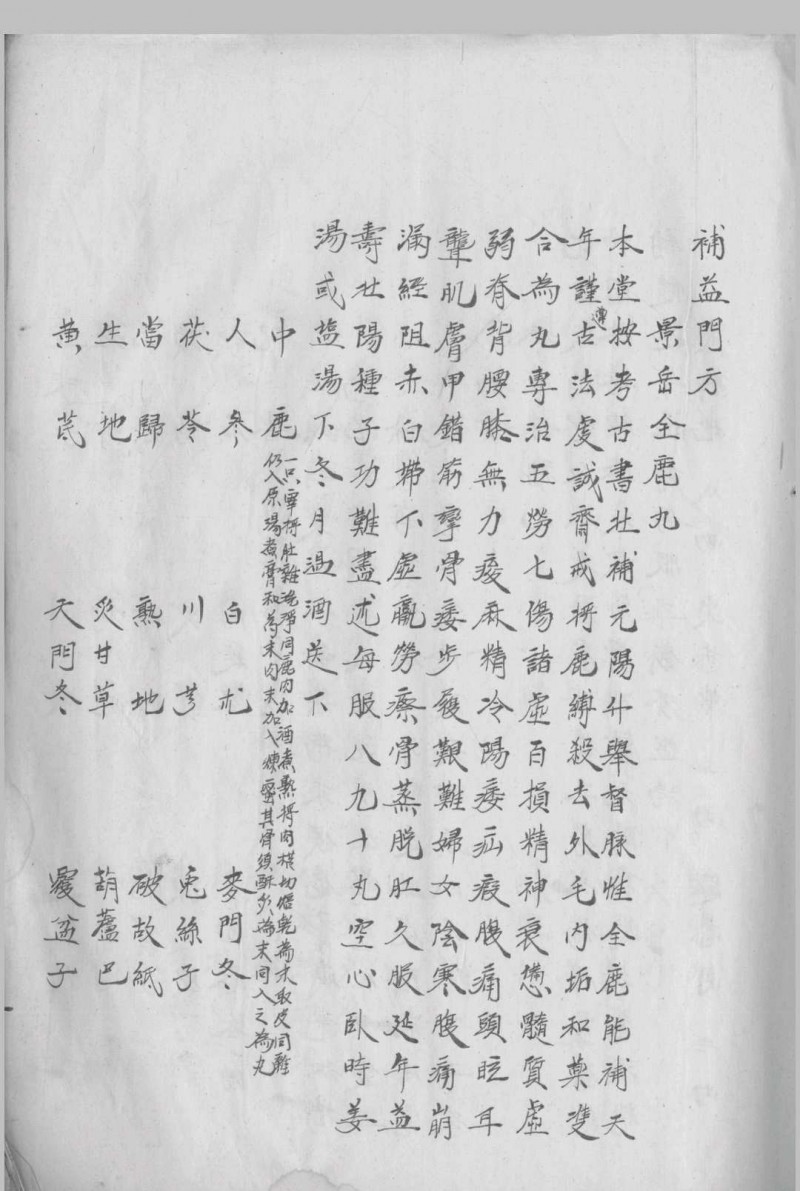 補益門方
景岳全鹿丸
本堂按考古書壯補元陽升舉督脉惟全鹿能補天
年謹遵古法虔誠齋戒將鹿縛殺去外毛內垢和藥隻
合為丸專治五勞七傷諸虛百損精神衰憊髓質虛
弱脊背腰膝無力痠麻精冷陽痿疝瘕腹痛頭眩耳
聾肌膚甲錯筋攣骨痿步履艱難婦女陰寒腹痛崩
漏經阻赤白帶下虛羸勞瘵骨蒸脫肛久服延年益
壽壯陽種子功難盡述每服八九十丸空心臥時姜
湯或盐湯下冬月過酒送下
中鹿 一只宰將肚雜洗淨同鹿肉加酒煮熟將肉橫切焙乾為末取皮同雜
仍入原湯煮膏和為末肉末加入煉蜜其骨須酥炙為末同入之為丸
人參 白朮 麥門冬
茯苓 川芎 兎絲子
當歸 熟地 破故紙
生地 炙甘草 葫蘆巴
黃芪 天門冬 覆盆子